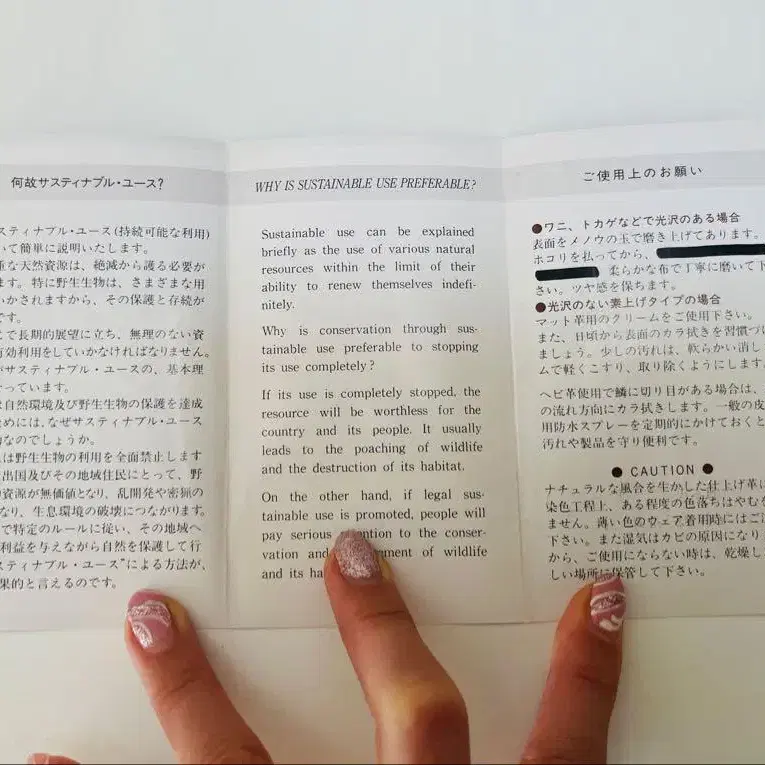 何故サスティナブル・ユース?
スティナブル・ユース(持続可能な利用)
いて簡単に説明いたします。
重な天然資源は、絶滅から護る必要が
ます。特に野生生物は、さまざまな用
いかされますから、その保護と存続が
です。
こで長期的展望に立ち、無理のない資
有効利用をしていかなければなりません。
がサスティナブル・ユースの、基本理
なっています。
は自然環境及び野生生物の保護を達成
ためには、なぜサスティナブル・ユース
的なのでしょうか。
には野生生物の利用を全面禁止します
出国及びその地域住民にとって、野
物資源が無価値となり、乱開発や密猟の
なり、生息環境の破壊につながります。
で特定のルールに従い、その地域へ
利益を与えながら自然を保護して行
スティナブル・ユース"による方法が、
果的と言えるのです。
WHY IS SUSTAINABLE USE PREFERABLE?
Sustainable use can be explained
briefly as the use of various natural
resources within the limit of their
ability to renew themselves indefi-
nitely.
Why is conservation through sus-
tainable use preferable to stopping
its use completely?
If its use is completely stopped, the
resource will be worthless for the
country and its people. It usually
leads to the poaching of wildlife
and the destruction of its habitat.
On the other hand, if legal sus-
tainable use is promoted, people will
pay serious to the conser-
vation and of wildlife
and its
ご使用上のお願い
●ワニ、トカゲなどで光沢のある場合
表面をメノウの玉で磨き上げてあります。
ホコリを払ってから、
柔らかな布で丁寧に磨いて下
さい。ツヤ感を保ちます。
●光沢のない素上げタイプの場合
マット革用のクリームをご使用下さい。
また、日頃から表面のカラ拭きを習慣づけ
ましょう。少しの汚れは、軟らかい消し
ムで軽くこすり、取り除くようにします。
ヘビ革使用で鱗に切り目がある場合は、
の流れ方向にカラ拭きします。一般の皮
用防水スプレーを定期的にかけておくと
汚れや製品を守り便利です。
● CAUTION ●
ナチュラルな風合を生かした仕上げ革に
染色工程上、ある程度の色落ちはやむを
ません。薄い色のウェア着用時にはご注
下さい。また湿気はカビの原因になり
から、ご使用にならない時は、乾燥し
しい場所に保管して下さい。